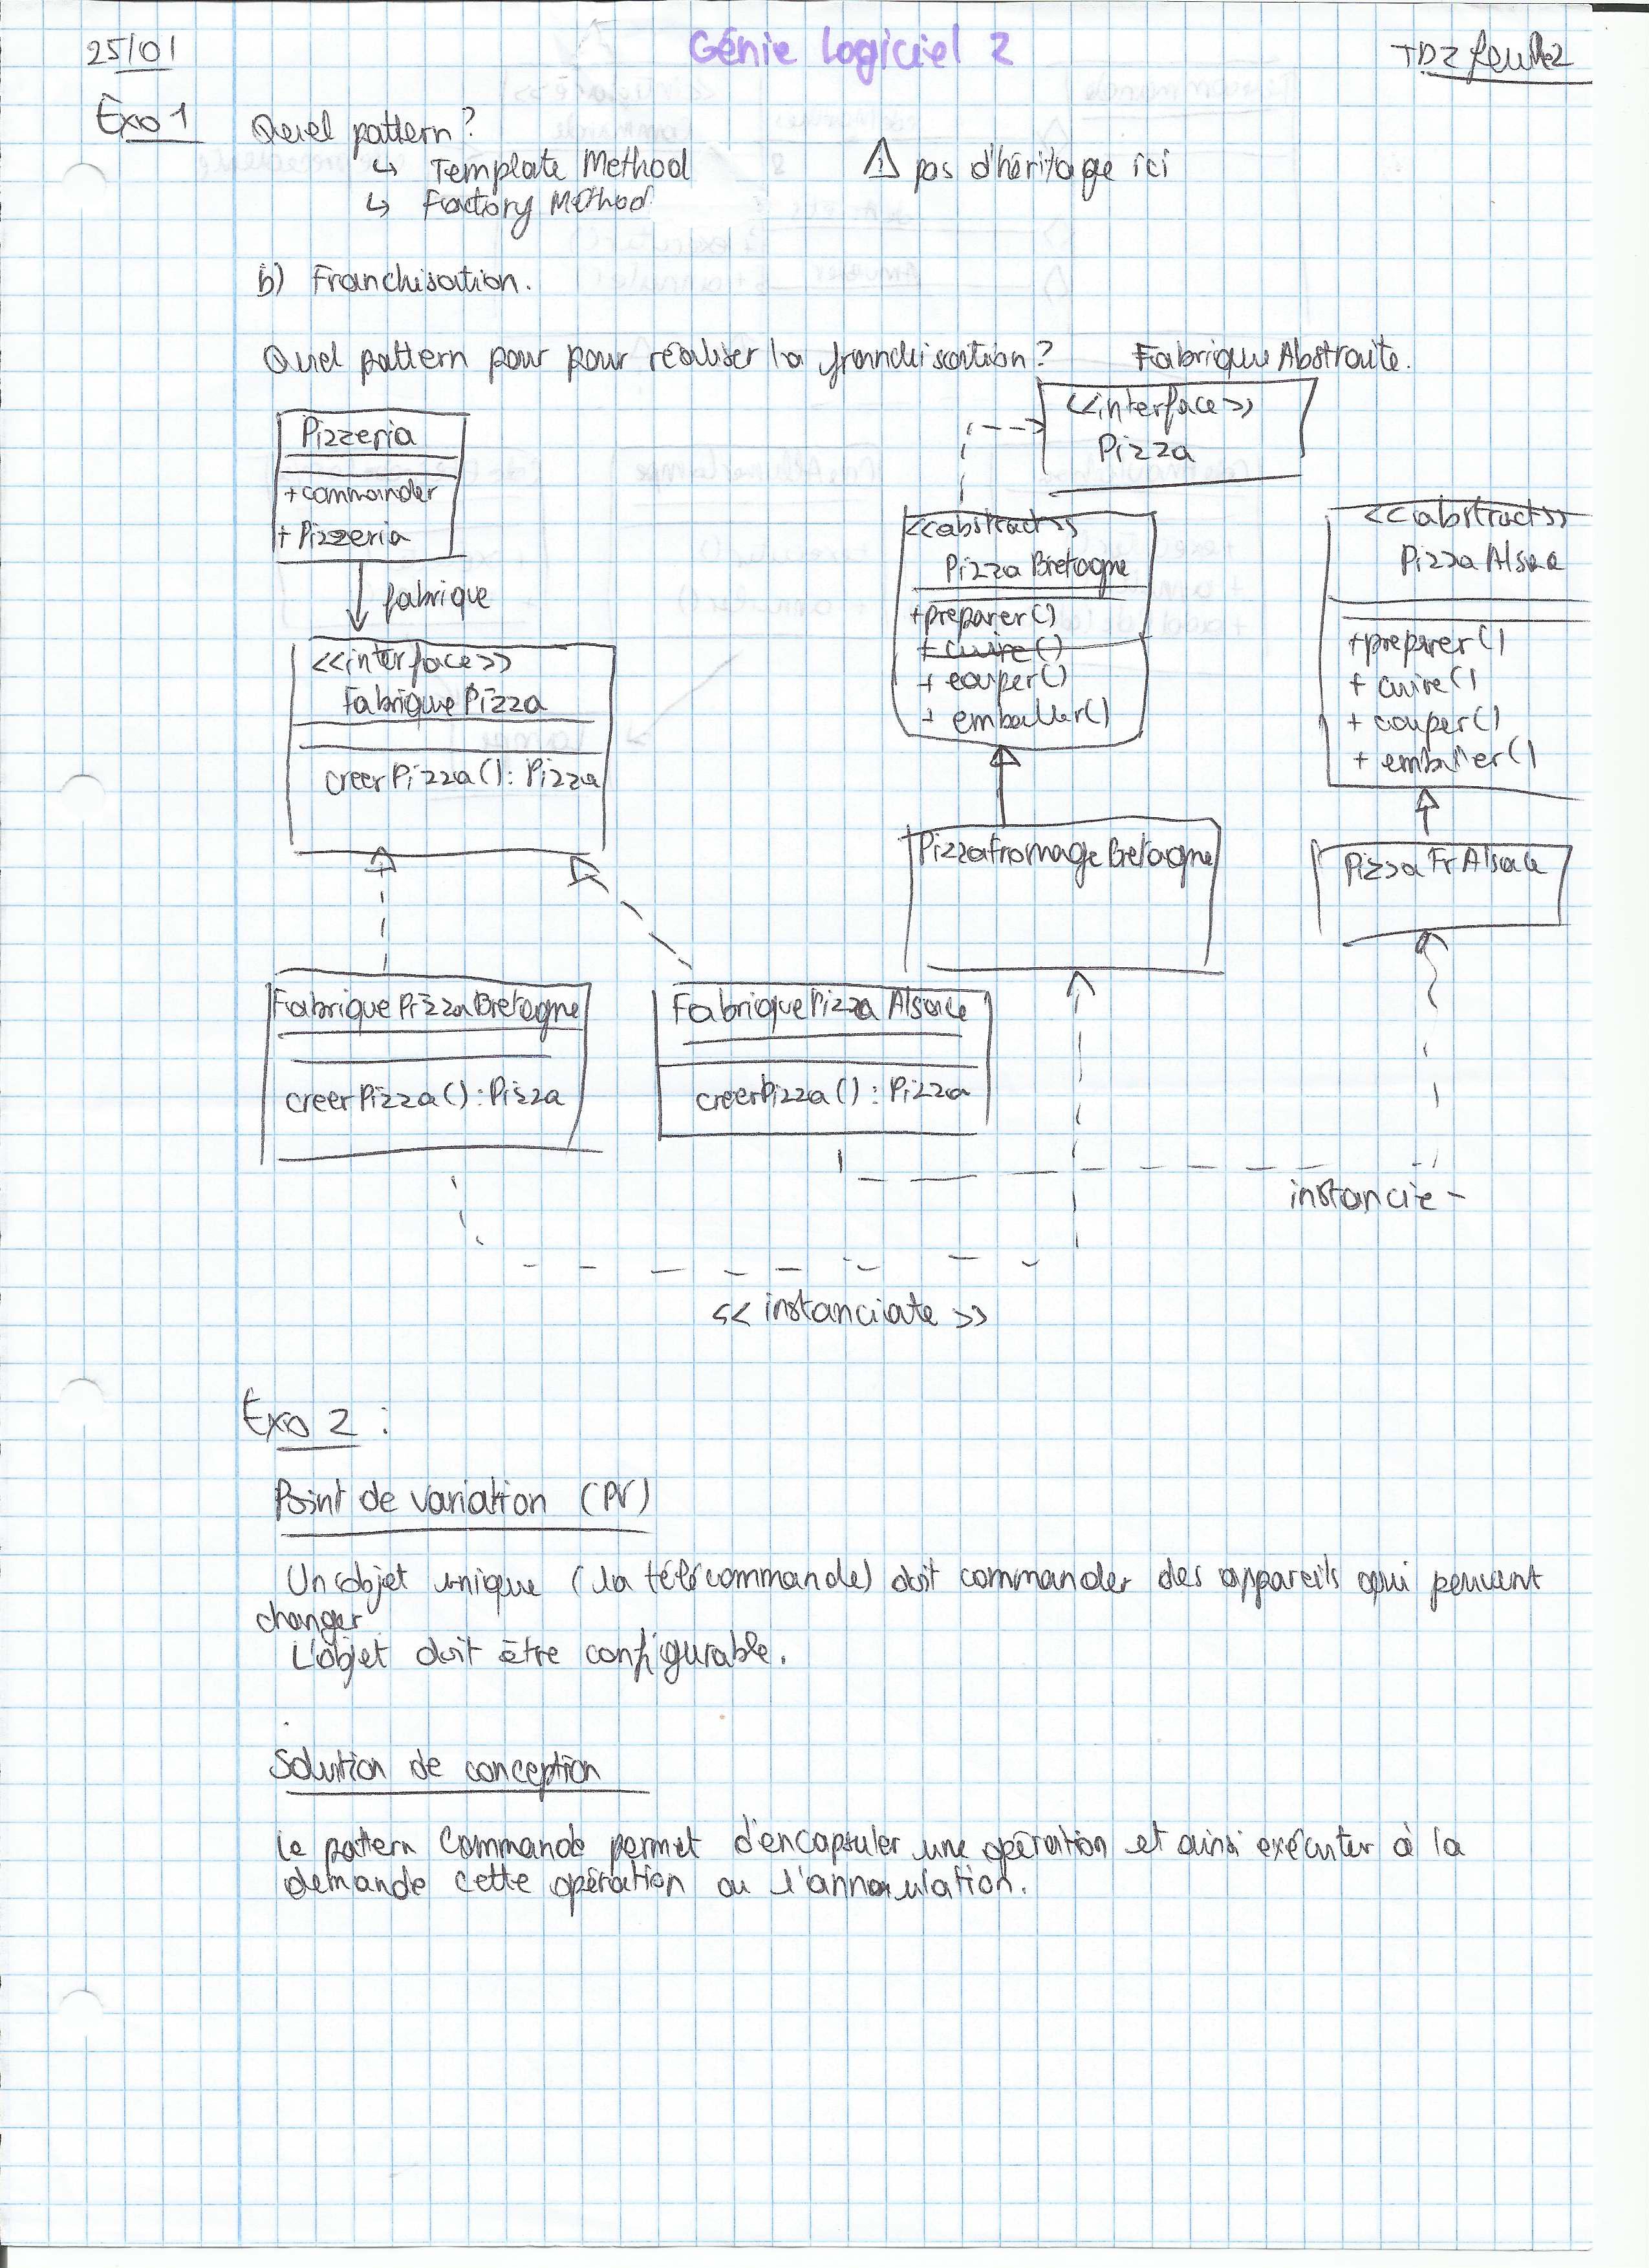 25/01
Génie Logiciel 2
TD2 feuille 2
Exo 1
Quel pattern?
↳ Template Method
⚠ pas d'héritage ici
↳ Factory Method
b) Franchisation.
Quel pattern pour pour réaliser la franchisation? Fabrique Abstraite.
Pizzeria
+commander
+ Pizzeria
fabrique
<<interface>>
Fabrique Pizza
creer Pizza () : Pizza
<<interface>>
Pizza
<<abstract>>
Pizza Bretagne
+preparer()
+ cuire ()
+ couper()
+ emballer()
<<abstract>>
Pizza Alsace
+preparer()
+ cuire()
+ couper()
+ emballer()
PizzaFromage Bretagne
Pizza Fr Alsace
Fabrique Pizza Bretagne
creer Pizza () : Pizza
Fabrique Pizza Alsace
creer Pizza () : Pizza
instancie -
<< instanciate >>
Exo 2 :
Point de variation (PV)
Un objet unique (la télécommande) doit commander des appareils qui peuvent
changer
L'objet doit être configurable.
Solution de conception
Le pattern Commande permet d'encapsuler une opération et ainsi exécuter à la
demande cette opération ou l'annulation.